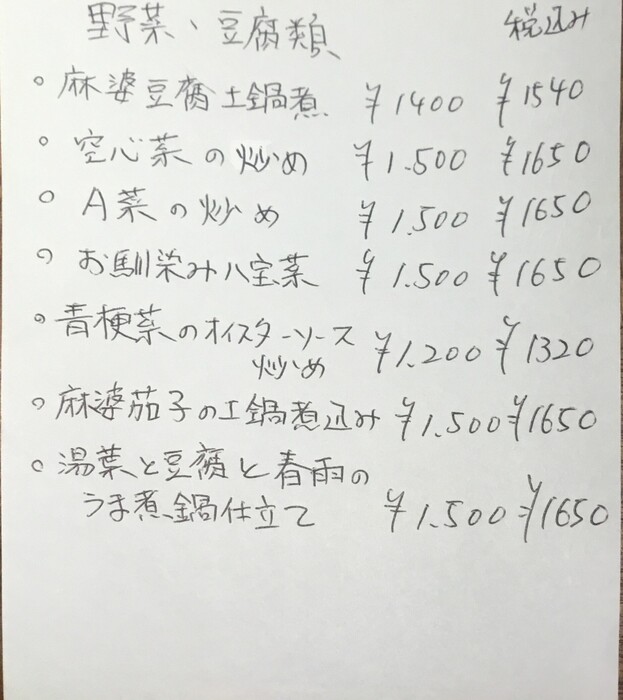 野菜、豆腐類 税込み
○ 麻婆豆腐土鍋煮 ¥1400 ¥1540
○ 空心菜の炒め ¥1.500 ¥1650
○ A菜の炒め ¥1.500 ¥1650
○ お馴染み八宝菜 ¥1.500 ¥1650
○ 青梗菜のオイスターソース
炒め ¥1.200 ¥1320
○ 麻婆茄子の土鍋煮込み ¥1.500 ¥1650
○ 湯葉と豆腐と春雨の
うま煮鍋仕立て ¥1.500 ¥1650